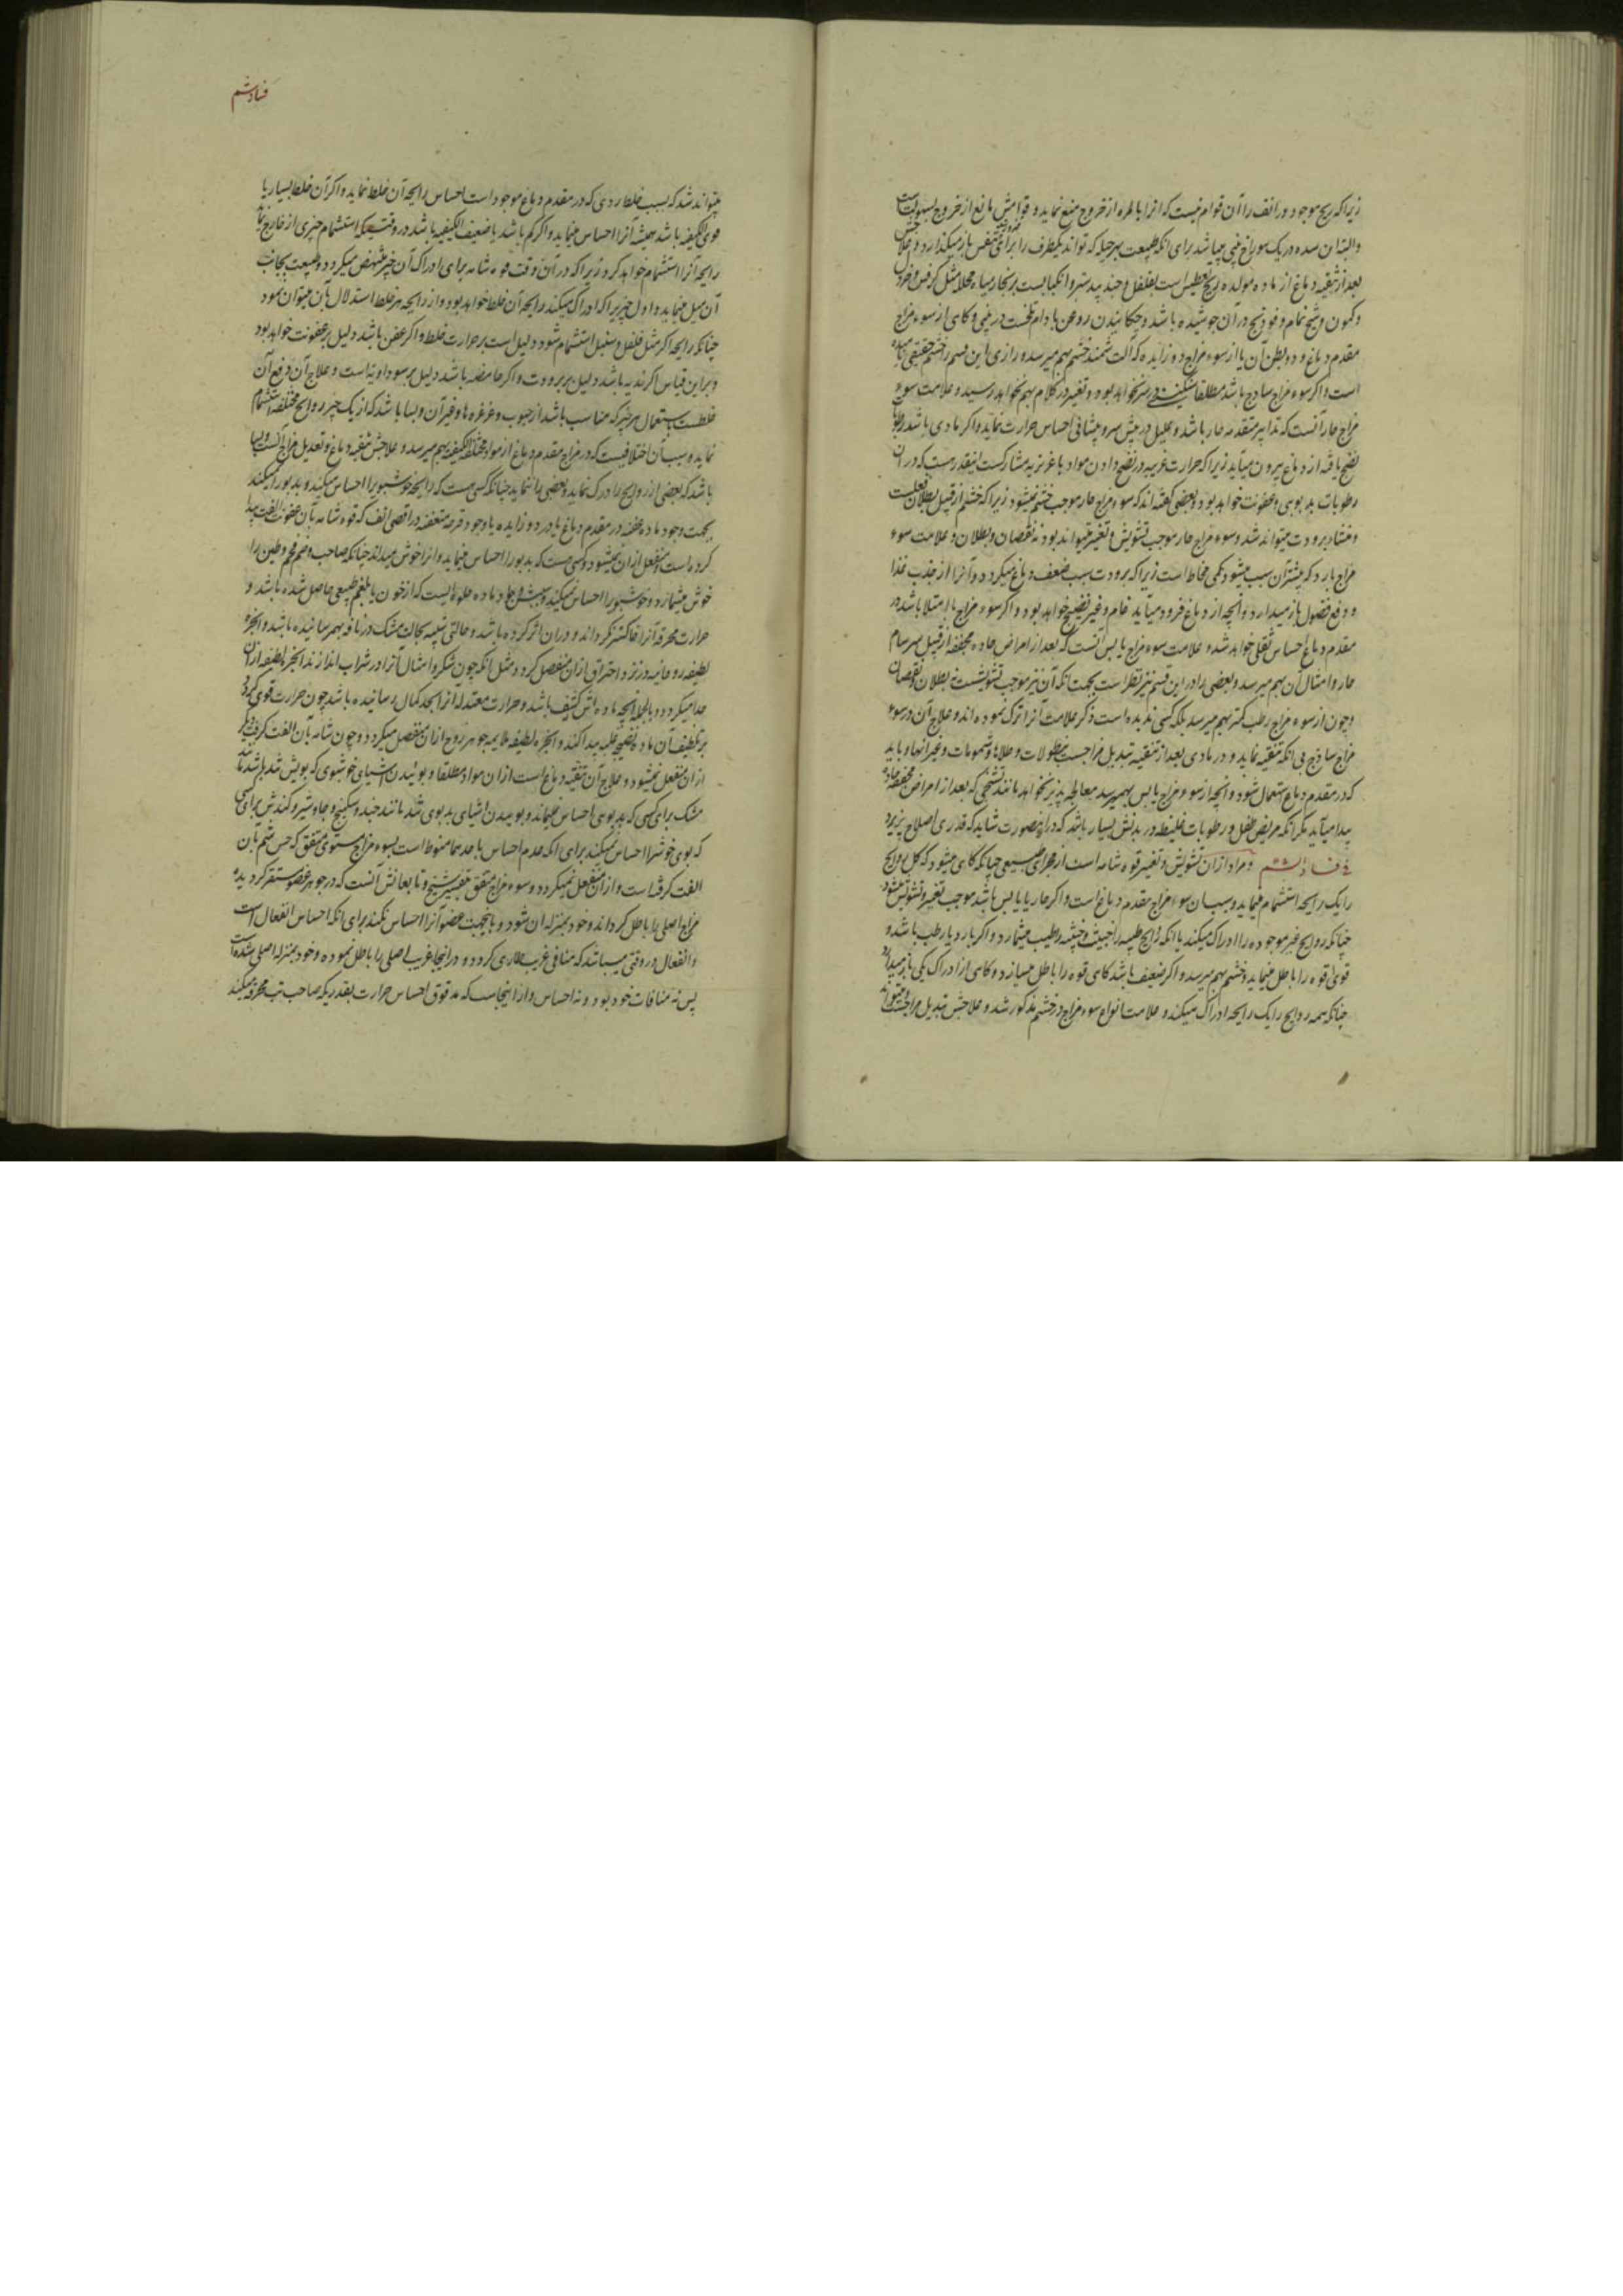 زیرا که ریح موجود در انف را آن قوام نیست که انرا بالمره از خروج منع نماید و قوامش مانع از خروج بسهولت است
والبته این سده در یک سوراخ بینی میباشد برای انکه طبیعت بهر حیله که تواند یکطرف را برای تنفس باز میگذارد و علاجش
بعد از تنقیه دماغ از ماده مولده ریح تعطیس است بفلفل و جندبیدستر و انکباب است بر بخار میاه محلله مثل کرفس و
و کمون و شیح نمام و فودنج در آن جوشیده باشد و چکانیدن روغن بادام تلخست در بینی و کاهی از سوء مزاج
مقدم دماغ و دو بطن آن یا از سوء مزاج دو زایده که آلت شمند خشم بهم میرسد و رازی این قسم را خشم حقیقی نامیده
است و اکر سوء مزاج ساذج باشد مطلقا سنگینی در سر نخواهد بود و تغییر در کلام بهم نخواهد رسید و علامت سوء
مزاج حار آنست که تدابیر متقدمه حار باشد و علیل در پیش سر و پیشانی احساس حرارت نماید و اکر مادی باشد رطوبات
نضج یافته از دماغ بیرون میآید زیرا که حرارت غریبه در نضج دادن مواد با غریزیه مشارکست اینقدر هست که در ان
رطوبات بد بویی و عفونت خواهد بود و بعضی کفته اند که سوء مزاج حار موجب خشم نمیشود زیرا که خشم از قبیل بطلان فعلست
و منشاء برودت میتواند شد و سوء مزاج حار موجب تشویش و تغییر میتواند بود نه نقصان و بطلان و علامت سوء
مزاج بارد که بیشتر آن سبب میشود کمی مخاط است زیرا که برودت سبب ضعف دماغ میکردد و آنرا از جذب غذا
و دفع فضول باز میدارد و آنچه از دماغ فرود میآید خام و غیر نضیج خواهد بود و اکر سوء مزاج با امتلا باشد در
مقدم دماغ احساس ثقلی خواهد شد و علامت سوء مزاج یابس آنست که بعد از امراض حاده مجففه از قبیل سرسام
حار و امثال آن بهم میرسد و بعضی را در این قسم نیز نظر است بجهت انکه آن نیز موجب تشویشست نه بطلان و نقصان
و چون از سوء مزاج رطب کمتر بهم میرسد بلکه کسی ندیده است ذکر علامت آنرا ترک نموده اند و علاج آن در سوء
مزاج ساذج بی انکه تنقیه نماید و در مادی بعد از تنقیه تبدیل مزاجست بنطولات و طلاها و شمومات و غیر انها و باید
که در مقدم دماغ استعمال شود و انچه از سوء مزاج یابس بهم میرسد معالجه پذیر نخواهد مانند تشنجی که بعد از امراض مجففه حاده
پیدا میآید مکر انکه مریض طفل و رطوبات غلیظه در بدنش بسیار باشد که در اینصورت شاید که قدری اصلاح پذیرد
فی فساد الشم و مراد از آن تشویش و تغییر قوه شامه است از مجرای طبیعی چنانکه کاهی میشود که کل روایح
را یک رایحه استشمام مینماید و سبب آن سوء مزاج مقدم دماغ است و اکر حار یا یابس باشد موجب تغییر و تشویش میشود
چنانکه روایح غیر موجوده را ادراک میکند یا انکه روایح طیبه را خبیث و خبیثه را طیب میشمارد و اکر بارد یا رطب باشد و
قوی قوه را باطل مینماید و خشم بهم میرسد و اکر ضعیف باشد کاهی قوه را باطل میسازد و کاهی از ادراک یکی باز میدارد
چنانکه همه روایح را یک رایحه ادراک میکند و علامت انواع سوء مزاج در خشم مذکور شد و علاجش تبدیل مزاجست و میتواند
فساد شم
میتواند شد که بسبب خلط ردی که در مقدم دماغ موجود است احساس رایحه آن خلط نماید و اکر آن خلط بسیار یا
قوی الکیفیه باشد همیشه آنرا احساس مینماید و اکر کم باشد یا ضعیف الکیفیه باشد در وقتیکه استشمام چیزی از خارج نماید
رایحه آنرا استشمام خواهد کرد زیرا که در آن وقت قوه شامه برای ادراک آن چیز منتهض میکردد و طبیعت بجانب
آن میل مینماید و اول چیزیرا که ادراک میکند رایحه آن خلط خواهد بود و از رایحه هر خلط استدلال بآن میتوان نمود
چنانکه رایحه اکر مثل فلفل و سنبل استشمام شود دلیل است بر حرارت خلط و اکر عفن باشد دلیل بر عفونت خواهد بود
و براین قیاس اکر ندیه باشد دلیل بر برودت و اکر حامضه باشد دلیل بر سوداویه است و علاج آن دفع آن
خلطست باستعمال هر چیز که مناسب باشد از حبوب و غرغره ها و غیر آن و بسا باشد که از یک چیز روایح مختلفه استشمام
نماید و سبب آن اختلافیست که در مزاج مقدم دماغ از مواد مختلفة الکیفیه بهم میرسد و علاجش تنقیه دماغ و تعدیل مزاج آنست و بسا
باشد که بعضی از روایح را درک نماید و بعضی را ننماید چنانکه کسی هست که رایحه خوشبو را احساس میکند و بد بو را نمیکند
بجهت وجود ماده عفنه در مقدم دماغ یا در دو زایده یا وجود قرحه متعفنه در اقصی انف که قوه شامه بآن عفونت الفت پیدا
کرده است و منفعل از ان نمیشود و کسی هست که بد بو را احساس مینماید و انرا خوش میداند چنانکه صاحب وحم فحم و طین را
خوش میشمارد و خوشبو را احساس نمیکند و سببش یا ماده حلوه ایست که از خون یا بلغم طبیعی حاصل شده باشد و
حرارت محرقه آنرا خاکستر نکرداند و در ان اثر کرده باشد و حالتی شبیه بحال مشک در نافه بهم رسانیده باشد و ابخره
لطیفه روحانیه در نزد احتراق از ان منفصل کردد مثل انکه چون شکر و امثال آنرا در شراب اندازند ابخره لطیفه از ان
جدا میکردد و بالجمله انچه ماده اش کثیف باشد و حرارت معتدله آنرا بحد کمال رسانیده باشد چون حرارت قوی کردد
بر تلطیف آن ماده نضیج غلبه پیدا کند و ابخره لطیفه ملایمه جوهر روح از ان منفصل میکردد و چون شامه بآن الفت کرفته دیکر
از ان منفعل نمیشود و علاج آن تنقیه دماغ است از ان مواد مطلقا و بوئیدن اشیای خوشبوی که بویش تند باشد مانند
مشک برای کسی که بد بوی احساس مینماید و بوییدن اشیای بد بوی تند مانند جند و سکبینج و جاوشیر و کندش برای کسی
که بوی خوش را احساس نمیکند برای انکه عدم احساس باحدهما منوط است بسوء مزاج مستوی متفق که حس شم بان
الفت کرفته است و از ان منفعل نمیکردد و سوء مزاج متفق بتفسیر شیخ و تابعانش آنست که در جوهر عضو مستقر کردیده
مزاج اصلی را باطل کرداند و خود بمنزله ان شود و باینجهت عضو آنرا احساس نکند برای انکه احساس انفعال است
و انفعال در وقتی میباشد که منافی غریب طاری کردد و در اینجا غریب اصلی را باطل نموده و خود بمنزله اصلی شده است
پس نه منافات خود بود و نه احساس و از اینجاست که مدقوق احساس حرارت بقدریکه صاحب تب محرقه میکند